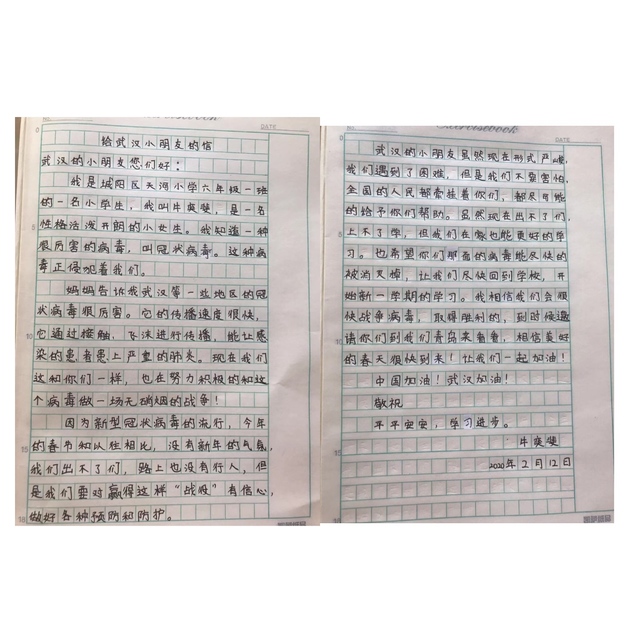 DATE
给武汉小朋友的信
武汉的小朋友您们好：
我是城阳区天河小学六年级一班
的一名小学生，我叫牛奕斐，是一名
性格活泼开朗的小女生。我知道一种
很厉害的病毒，叫冠状病毒。这种病
毒正侵犯着我们。
妈妈告诉我武汉等一些地区的冠
状病毒很厉害。它的传播速度很快，
它通过接触、飞沫进行传播，能让感
染的患者患上严重的肺炎。现在我们
这和你们一样，也在努力积极的和这
个病毒做一场无硝烟的战争！
因为新型冠状病毒的流行，今年
的春节和以往相比，没有新年的气氛，
我们出不了们，路上也没有行人，但
是我们要对赢得这样“战役”有信心，
做好各种预防和防护。
Exercisebook
DATE
武汉的小朋友虽然现在形式严峻，
我们遇到了困难，但是我们不要害怕，
全国的人民都牵挂着你们，都尽可能
的给予你们帮助。虽然现在出不了们，
上不了学，但我们在家也能更好的学
习。也希望你们那面的病毒能尽快的
被消灭掉，让我们尽快回到学校，开
始新一学期的学习。我相信我们会很
快战争病毒，取得胜利的，到时候邀
请你们到我们青岛来看看，相信美好
的春天很快到来！让我们一起加油！
中国加油！武汉加油！
敬祝
平平安安，学习进步。
牛奕斐
2020年2月12日